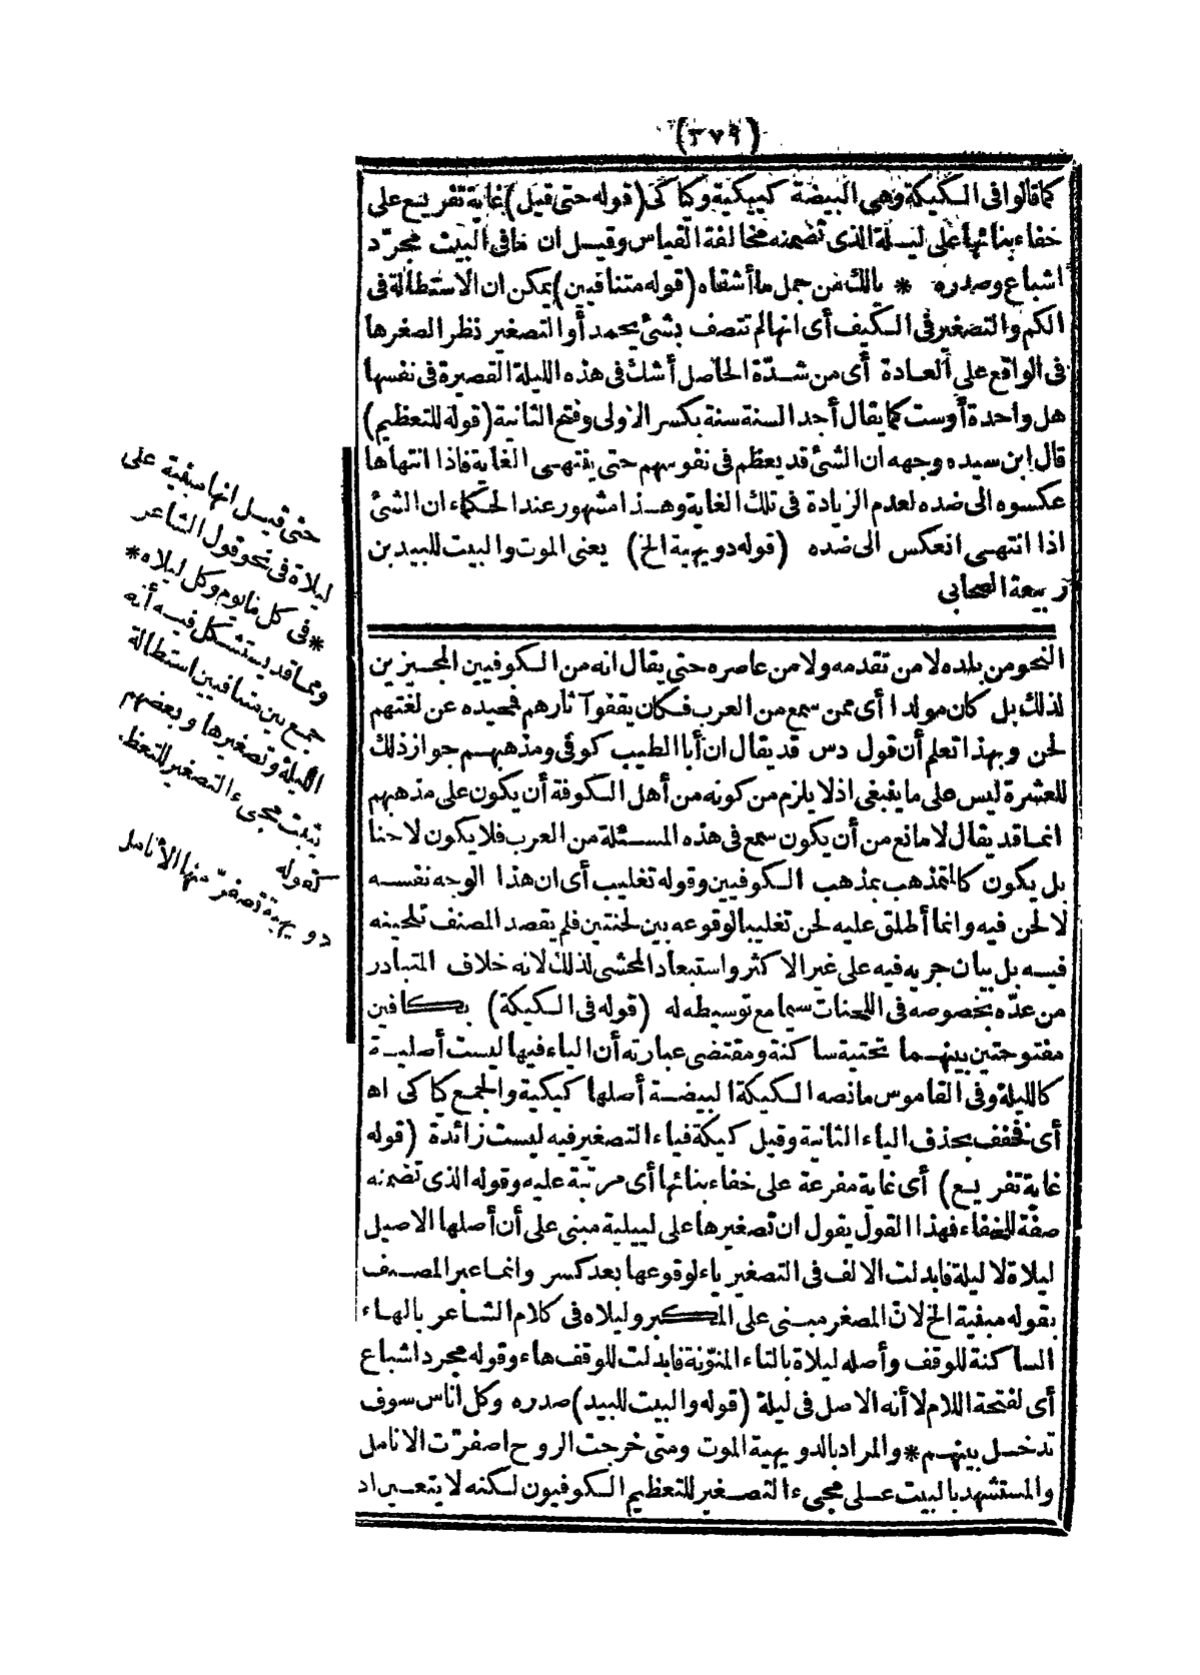 (٣٧٩)
كما قالوا فى الكيكة وهى البيضة كييكية وكياكى (قوله حتى قيل) غاية تفريع على
خفاء بنائها على ليلة الذى تضمنه مخالفة القياس وقيل ان ما فى البيت مجرّد
اشباع وصدره * يالك من جمل ما أشقاه (قوله متنافيين) يمكن ان الاستطالة فى
الكم والتصغير فى الكيف أى انها لم تتصف بشئ يحمد أو التصغير نظر الصغرها
فى الواقع على العادة أى من شدّة الحاصل أشك فى هذه الليلة القصيرة فى نفسها
هل واحدة أوست كما يقال أجد السنة سنة بكسر الاولى وفتح الثانية (قوله للتعظيم)
قال ابن سيده وجهه ان الشئ قد يعظم فى نفوسهم حتى ينتهى الغاية فاذا انتهاها
عكسوه الى ضده لعدم الزيادة فى تلك الغاية وهذا مشهور عند الحكماء ان الشئ
اذا انتهى انعكس الى ضده (قوله دويهية الخ) يعنى الموت والبيت للبيد بن
ربيعة الصحابى
حتى قيل انها مبنية على
ليلاة فى نحو قول الشاعر
* فى كل ما يوم وكل ليلاه *
ومما قد يستشكل فيه أنه
جمع بين متنافيين استطالة
الليلة وتصغيرها وبعضهم
يثبت مجىء التصغير للتعظيم
كقوله
دويهية تصفرّ منها الأنامل
النحو من بلده لا من تقدمه ولا من عاصره حتى يقال انه من الكوفيين المجيزين
لذلك بل كان مولدا أى ممن سمع من العرب فكان يقفو آثارهم فمحيده عن لغتهم
لحن وبهذا تعلم أن قول دس قد يقال ان أبا الطيب كوفى ومذهبهم جواز ذلك
للعشرة ليس على ما ينبغى اذ لا يلزم من كونه من أهل الكوفة أن يكون على مذهبهم
انما قد يقال لا مانع من أن يكون سمع فى هذه المسئلة من العرب فلا يكون لاحنا
بل يكون كالمتمذهب بمذهب الكوفيين وقوله تغليب أى ان هذا الوجه نفسه
لا لحن فيه وانما أطلق عليه لحن تغليبا لوقوعه بين لحنتين فلم يقصد المصنف تلحينه
فيه بل بيان جريه فيه على غير الاكثر واستبعاد المحشى لذلك لانه خلاف المتبادر
من عدّه بخصوصه فى اللحنات سيما مع توسيطه له (قوله فى الكيكة) بكافين
مفتوحتين بينهما تحتية ساكنة ومقتضى عبارته أن الياء فيها ليست أصلية
كالليلة وفى القاموس مانصه الكيكة البيضة أصلها كيكية والجمع كياكى اه
أى فخفف بحذف الياء الثانية وقيل كييكة فياء التصغير فيه ليست زائدة (قوله
غاية تفريع) أى غاية مفرعة على خفاء بنائها أى مرتبة عليه وقوله الذى تضمنه
صفة للخفاء فهذا القول يقول ان تصغيرها على لييلية مبنى على أن أصلها الاصيل
ليلاة لا ليلة فابدلت الالف فى التصغير ياء لوقوعها بعد كسر وانما عبر المصنف
بقوله مبنية الخ لان المصغر مبنى على المكبر وليلاه فى كلام الشاعر بالهاء
الساكنة للوقف وأصله ليلاة بالتاء المنوّنة فابدلت للوقف هاء وقوله مجرد اشباع
أى لفتحة اللام لا أنه الاصل فى ليلة (قوله والبيت للبيد) صدره وكل اناس سوف
تدخل بينهم * والمراد بالدويهية الموت ومتى خرجت الروح اصفرّت الانامل
والمستشهد بالبيت على مجىء التصغير للتعظيم الكوفيون لكنه لا يتعير اد